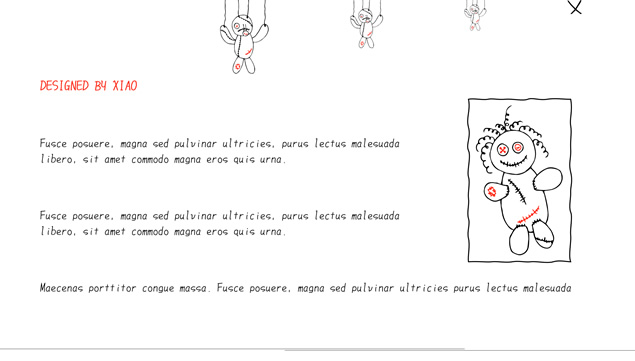 DESIGNED BY XIAO
Fusce posuere, magna sed pulvinar ultricies, purus lectus malesuada
libero, sit amet commodo magna eros quis urna.
Fusce posuere, magna sed pulvinar ultricies, purus lectus malesuada
libero, sit amet commodo magna eros quis urna.
Maecenas porttitor congue massa. Fusce posuere, magna sed pulvinar ultricies purus lectus malesuada